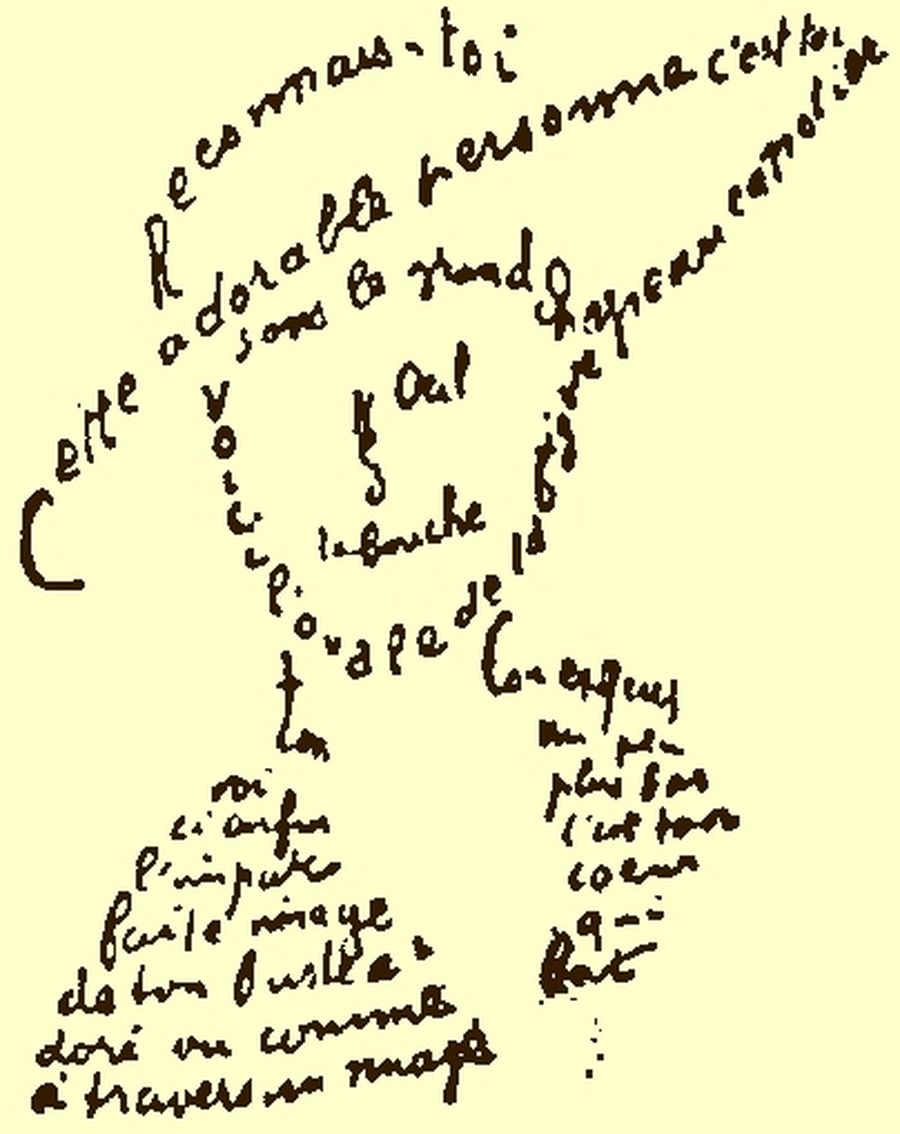 Reconnais-toi
Cette adorable personne c'est toi
sous le grand chapeau canotier
Oeil
Nez
la bouche
Voici l'ovale de ta figure
ton
Cou exquis
un peu
plus bas
c'est ton
coeur
qui
bat
voi
ci enfin
l'impar
faite image
de ton buste a
doré vu comme
à travers un nuage